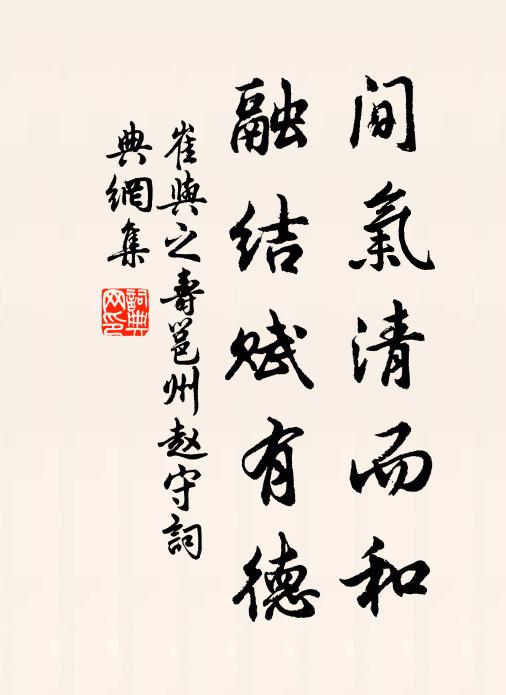 间氣清而和
融结赋有德
崔與之寿邕州赵守詞
典網集
詞典
网印